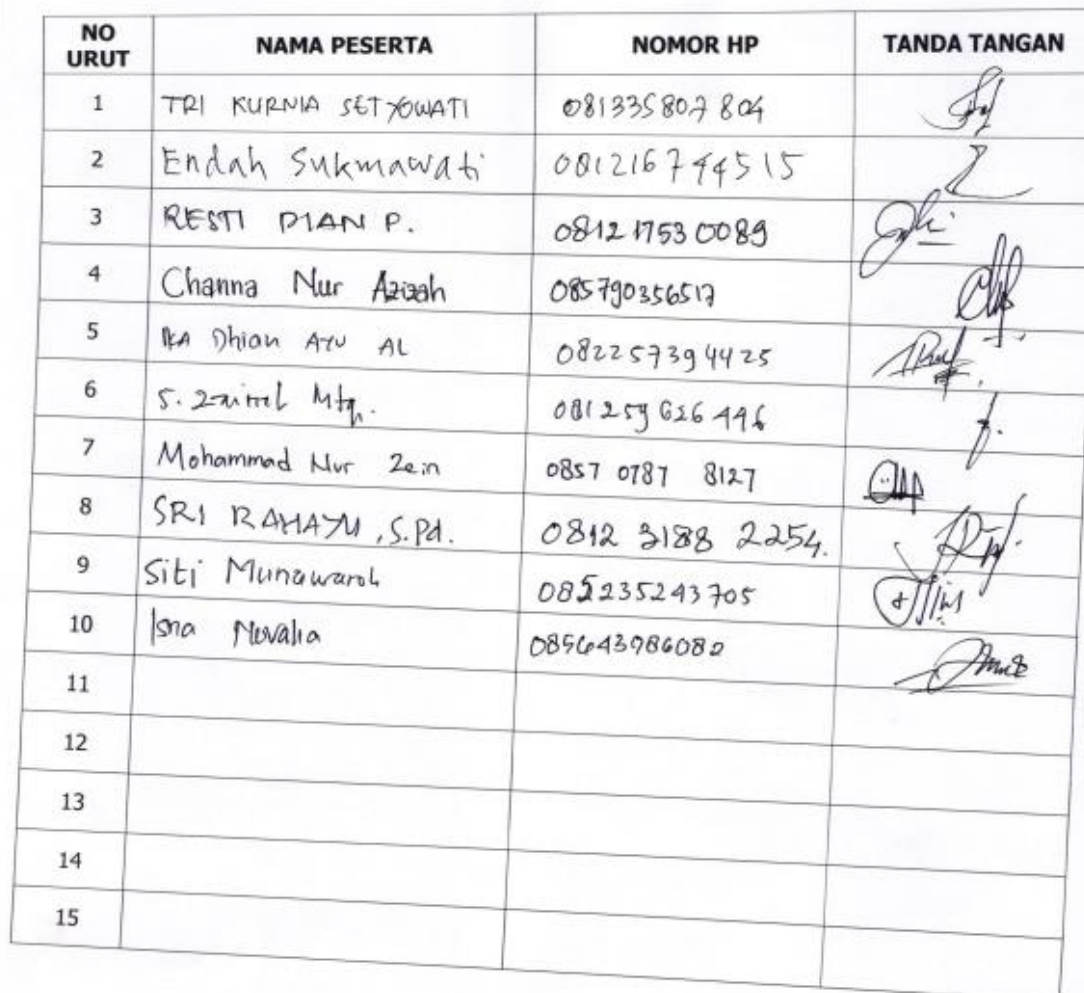 NO URUT NAMA PESERTA NOMOR HP TANDA TANGAN
1 TRI KURNIA SETYOWATI 081335807804
2 Endah Sukmawati 081216744515
3 RESTI DIAN P. 081217530089
4 Channa Nur Azizah 085790356517
5 IKA Dhian AYU AL 082257394425
6 S. 081259626446
7 Mohammad Nur Zein 0857 0787 8127
8 SRI RAHAYU, S.Pd. 0812 3188 2254.
9 Siti Munawaroh 085235243705
10 Isna
11
12
13
14
15